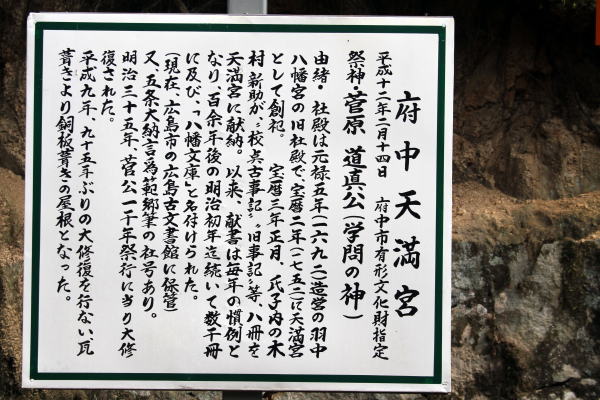 府中天満宮
平成十二年二月十四日　府中市有形文化財指定
祭神・菅原 道真公（学問の神）
由緒・社殿は元禄五年（一六九二）造営の羽中
八幡宮の旧社殿で、宝暦二年（一七五二）に天満宮
として創祀。 宝暦三年正月、氏子内の木
村 新助が、〝校点古事記〟〝旧事記〟等、八冊を
天満宮に献納。以来、献書は毎年の慣例と
なり、百余年後の明治初年迄続いて数千冊
に及び、〝八幡文庫〟と名付けられた。
（現在、広島市の広島古文書館に保管）
又、五条大納言為範郷筆の社号あり。
明治三十五年、菅公一千年祭行に当り大修
復された。
平成九年、九十五年ぶりの大修復を行ない、瓦
葺きより銅板葺きの屋根となった。